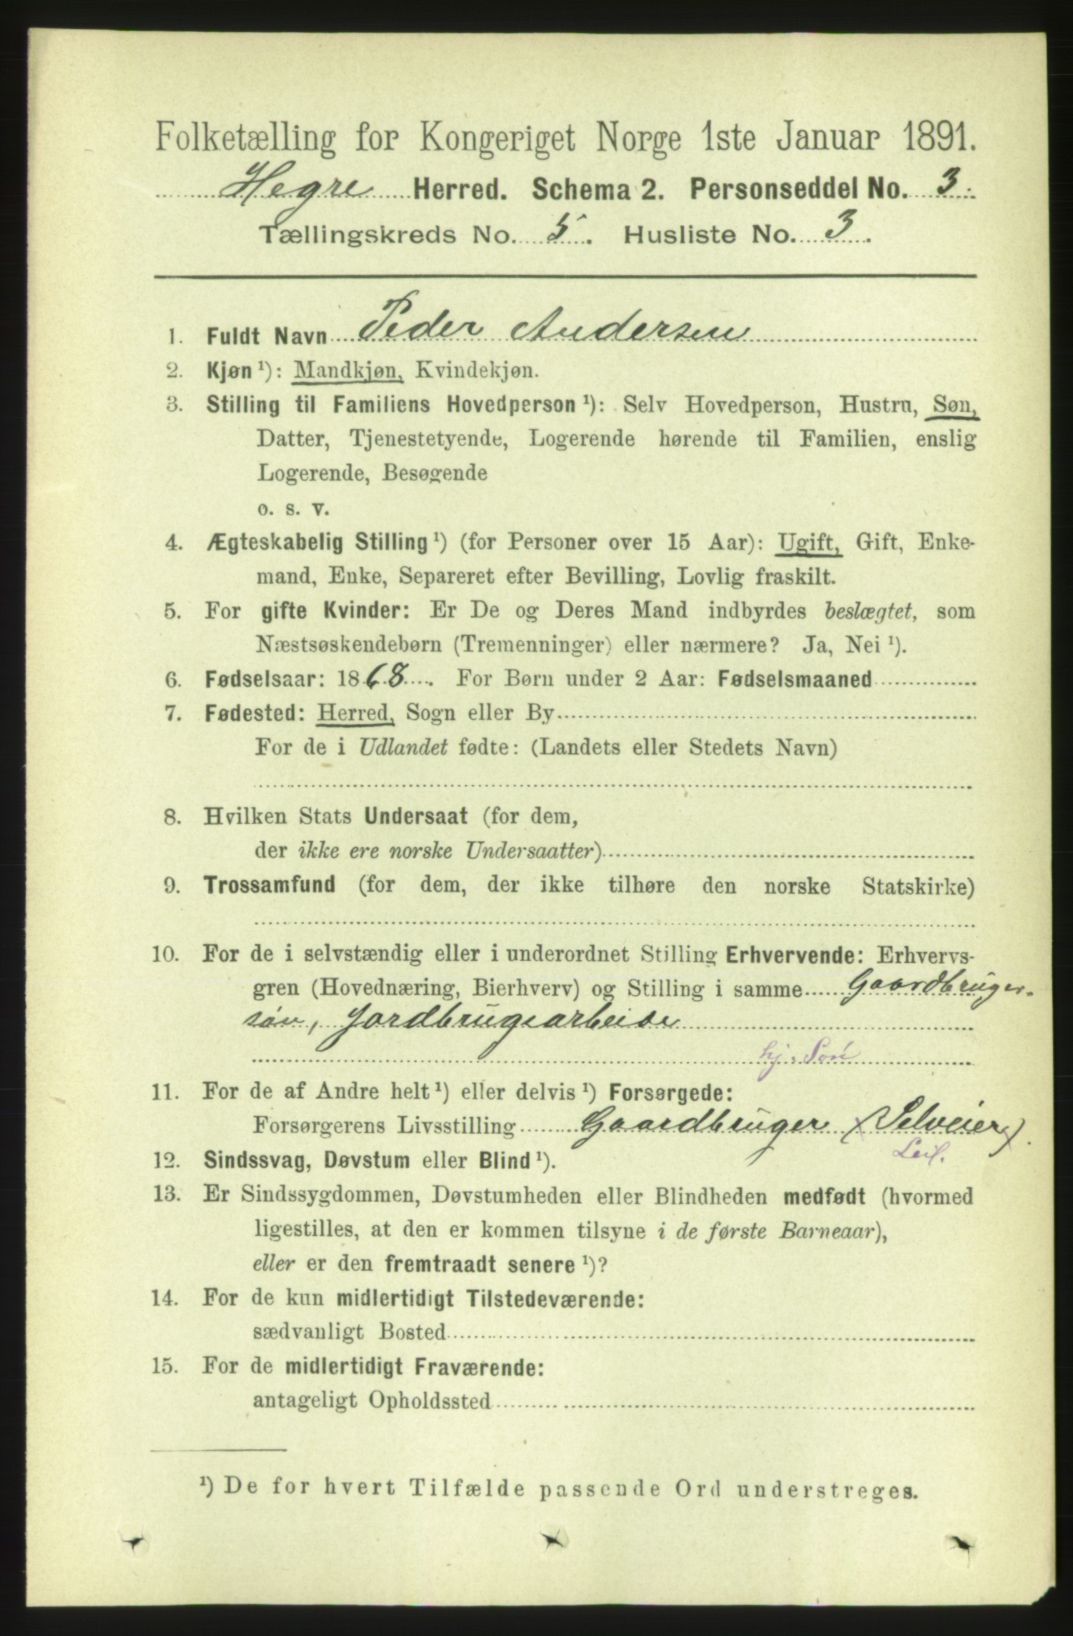 Folketælling for Kongeriget Norge 1ste Januar 1891.
Hegre Herred. Schema 2. Personseddel No. 3.
Tællingskreds No. 5. Husliste No. 3.
1. Fuldt Navn Peder Andersen
2. Kjøn ¹): Mandkjøn, Kvindekjøn.
3. Stilling til Familiens Hovedperson ¹): Selv Hovedperson, Hustru, Søn,
Datter, Tjenestetyende, Logerende hørende til Familien, enslig
Logerende, Besøgende
o. s. v.
4. Ægteskabelig Stilling ¹) (for Personer over 15 Aar): Ugift, Gift, Enke-
mand, Enke, Separeret efter Bevilling, Lovlig fraskilt.
5. For gifte Kvinder: Er De og Deres Mand indbyrdes beslægtet, som
Næstsøskendebørn (Tremenninger) eller nærmere? Ja, Nei ¹).
6. Fødselsaar: 1868. For Børn under 2 Aar: Fødselsmaaned
7. Fødested: Herred, Sogn eller By
For de i Udlandet fødte: (Landets eller Stedets Navn)
8. Hvilken Stats Undersaat (for dem,
der ikke ere norske Undersaatter)
9. Trossamfund (for dem, der ikke tilhøre den norske Statskirke)
10. For de i selvstændig eller i underordnet Stilling Erhvervende: Erhvervs-
gren (Hovednæring, Bierhverv) og Stilling i samme Gaardbruger-
søn, Jordbrugsarbeide
hj. Søn
11. For de af Andre helt ¹) eller delvis ¹) Forsørgede:
Forsørgerens Livsstilling Gaardbruger (Selveier).
Leil.
12. Sindssvag, Døvstum eller Blind ¹).
13. Er Sindssygdommen, Døvstumheden eller Blindheden medfødt (hvormed
ligestilles, at den er kommen tilsyne i de første Barneaar),
eller er den fremtraadt senere ¹)?
14. For de kun midlertidigt Tilstedeværende:
sædvanligt Bosted
15. For de midlertidigt Fraværende:
antageligt Opholdssted
¹) De for hvert Tilfælde passende Ord understreges.